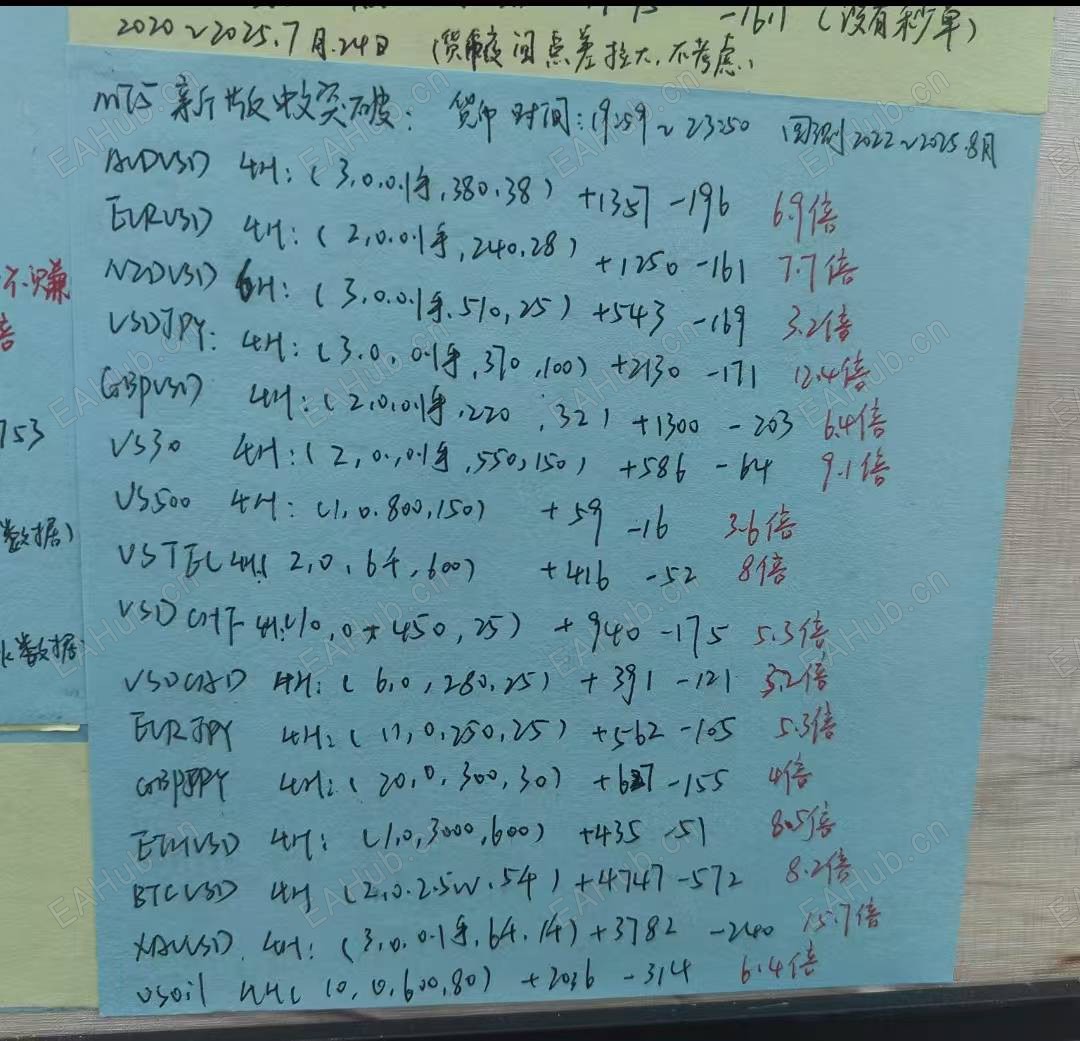 -16.1 (没有秒单)
2020~2025.7月.24日 (货币夜间点差拉大,不考虑)
MT5 新版收突破: 货币时间:19259~23250 回测2022~2025.8月
AUDUSD 4H:(3,0,0.1手,380,38) +1357 -196 6.9倍
EURUSD 4H:(2,0,0.1手,240,28) +1250 -161 7.7倍
NZDUSD 6H:(3,0,0.1手,510,25) +543 -169 3.2倍
USDJPY: 4H:(3,0,0.1手,370,100) +2130 -171 12.4倍
GBPUSD 4H:(2,0,0.1手,220,32) +1300 -203 6.4倍
US30 4H:(2,0,0.1手,550,150) +586 -64 9.1倍
US500 4H:(1,0.800,150) +59 -16 3.6倍
USTEC 4H:(2,0,64,600) +416 -52 8倍
USDCHF 4H:(10,0,450,25) +940 -175 5.3倍
USDCAD 4H:(6,0,280,25) +391 -121 3.2倍
EURJPY 4H:(11,0,250,25) +562 -105 5.3倍
GBPJPY 4H:(20,0,300,30) +627 -155 4倍
ETHUSD 4H:(1,0,3000,600) +435 -51 8.5倍
BTCUSD 4H (2,0.2.5W.54) +4747 -572 8.2倍
XAUUSD 4H:(3,0,0.1手,64.14) +3782 -240 15.7倍
USOil 4H(10,0,600,80) +2036 -314 6.4倍
不赚
倍
753
数据)
数据
EAHub.cn